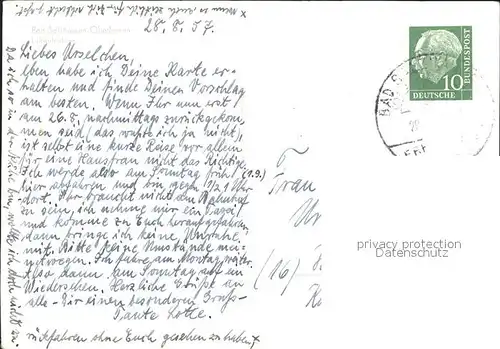 x wenn es Euch zeitlich für Zeit
28.8.57.
Liebes Urselchen,
eben habe ich Deine Karte er-
halten und finde Deinen Vorschlag
am besten. Wenn Ihr nun erst
am 26.8. nachmittags zurückgekom-
men seid, das wußte ich ja nicht,
ist selbst eine kurze Reise vor allem
für eine Hausfrau nicht das Richtige.
Ich werde also am Sonntag früh (1.9.)
hier abfahren und bin gegen 1/2 1 Uhr
dort. Ihr braucht nicht am Bahnhof
zu sein, ich nehme mir ein Taxi
und komme zu Euch heraufgefahren,
dann bringe ich keine Unruhe
mit. Bitte keine Umstände mei-
netwegen. Ich fahre am Montag weiter.
Also dann am Sonntag auf ein
Wiedersehen. Herzliche Grüße an
alle. Dir einen besonderen Gruß
Tante Lotte.
Da ich so in der Nähe bin, wollte ich doch nicht zu-
rückfahren ohne Euch gesehen zu haben x
10
DEUTSCHE
BUNDESPOST
BAD
Frau
Ur
(16)
privacy protection
Datenschutz